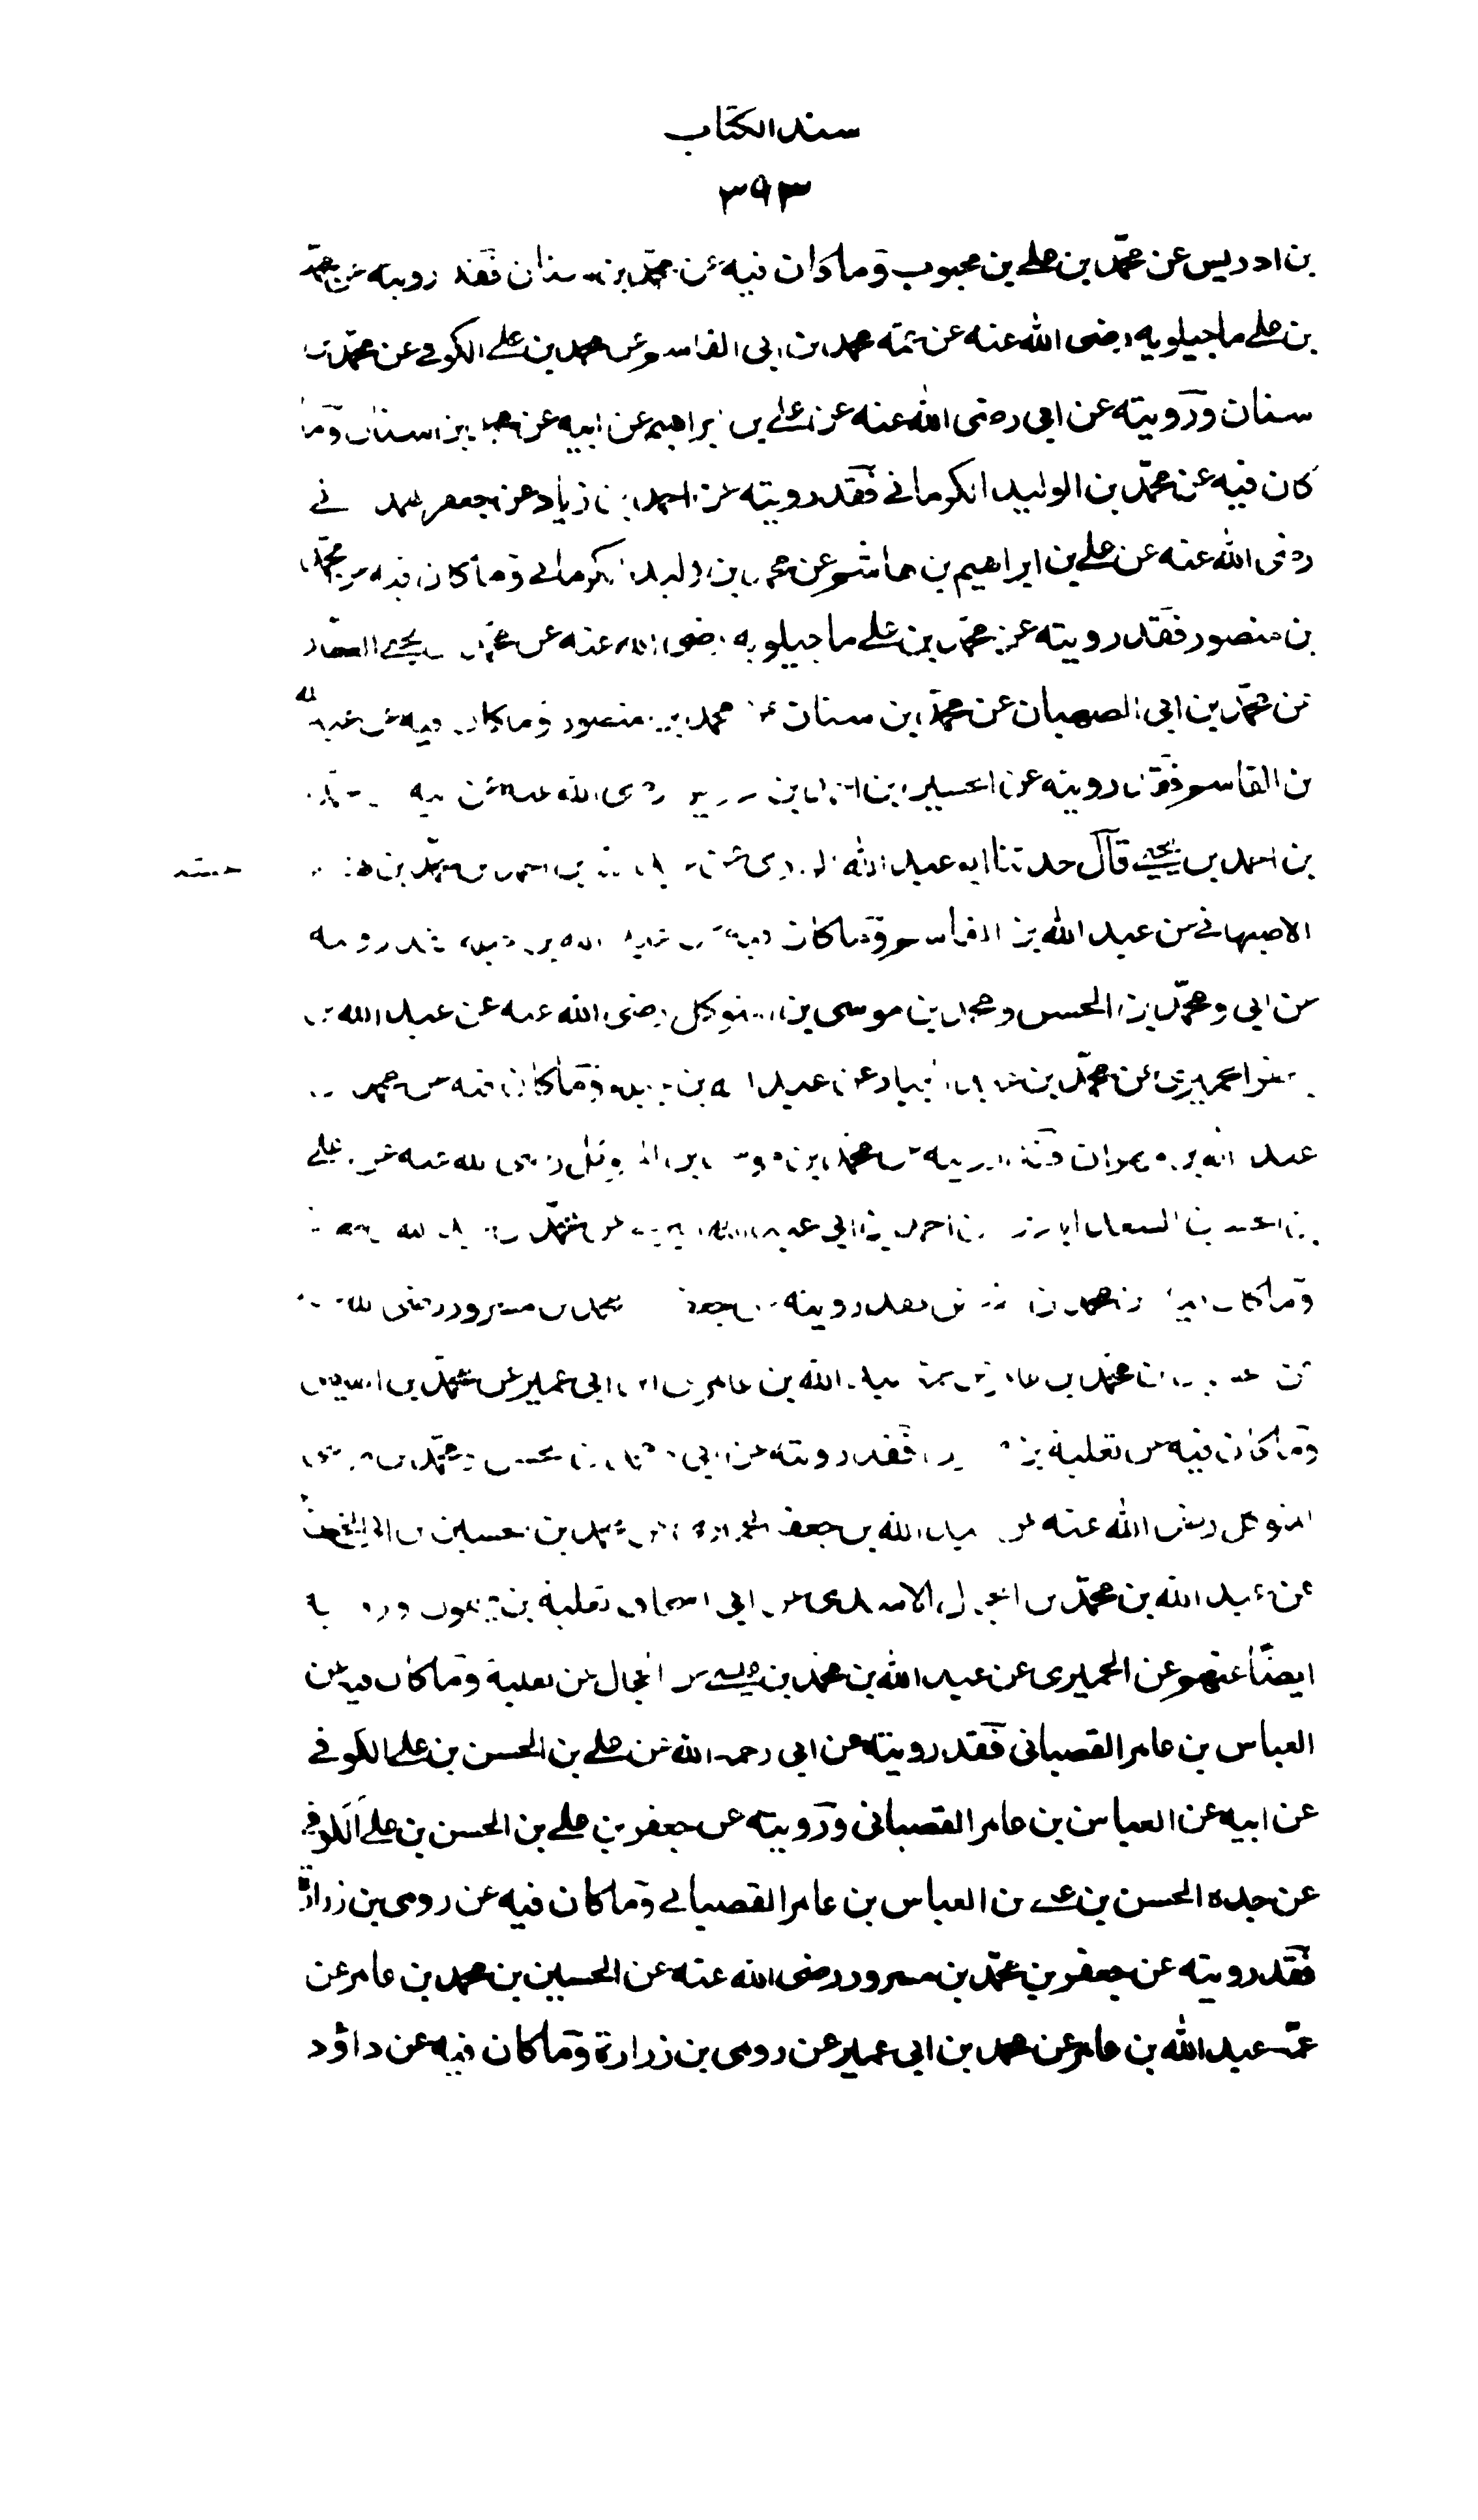 سند الكتاب
۳۹۳
بن ادريس عن محمّد بن علے بن محبوب وما كان فيه عن محمّد بن سنان فقد رويته عن محمّد
بن علے ماجيلويه رضى الله عنه عن عمّه محمد بن ابى القاسم عن محمد بن علے الكوفے عن محمّد بن
سنان ورويته عن ابى رضى الله عنه عن علے بن ابراهيم عن ابيه عن محمد بن سنان وما
كان فيه عن محمّد بن الوليد الكرمانے فقد رويته عن احمد بن زياد عن جعفر
رضى الله عنه عن علے بن ابراهيم بن هاشم عن محمد بن الوليد الكرمانے وما كان فيه عن محمّد
بن منصور فقد رويته عن محمّد بن علے ماجيلويه رضى الله عنه عن محمّد بن يحيے العطّار
عن محمّد بن ابى الصهبان عن محمّد بن سنان عن محمد بن منصور وما كان فيه عن عبد الله
بن القاسم فقد رويته عن الحسين بن احمد بن ادريس رضى الله عنه عن ابيه
بن احمد بن يحيے قال حدثنا ابو عبد الله الرازى عن بن احمد بن محمّد بن
الاصبهانے عن عبد الله بن القاسم وما كان فيه عن عبد الله بن جبلة فقد رويته
عن ابى ومحمّد بن الحسن ومحمد بن موسى بن المتوكل رضى الله عنه عن عبد الله بن
جعفر الحميرى عن محمّد بن عبد الجبار عن عبد الله بن جبلة وما كان فيه عن محمد بن
عبد الله بن مهران فقد رويته عن محمّد بن موسى بن المتوكل رضى الله عنه عن علے
بن الحسين السعدابادى عن احمد بن ابى عبد الله عن ابيه عن محمّد بن عبد الله بن
وما كان فيه عن محمد بن فقد رويته عن جعفر محمد بن مسرور رضى الله
عن محمّد بن عامر عن عمّه عبد الله بن عامر عن ابن ابى عمير عن محمّد بن
وما كان فيه عن ثعلبة بن ميمون فقد رويته عن ابى ومحمّد بن الحسن ومحمّد بن موسى
المتوكل رضى الله عنه عن عبد الله بن جعفر الحميرى عن محمد بن الحسين بن ابى الخطاب
عن عبد الله بن محمّد الحجال الاسدى عن ابى اسحاق ثعلبة بن ميمون ورويته
ايضًا عنهم عن الحميرى عن عبد الله بن محمد بن عيسے عن الحجال عن ثعلبة وما كان فيه عن
العباس بن عامر القصبانى فقد رويته عن ابى رحمه الله عن علے بن الحسن بن علے الكوفے
عن ابيه عن العباس بن عامر القصبانى ورويته عن جعفر بن علے بن الحسن بن علے الكوفے
عن جده الحسن بن علے عن العباس بن عامر القصبانے وما كان فيه عن رومى بن زرارة
فقد رويته عن جعفر بن محمّد بن مسرور رضى الله عنه عن الحسين بن محمد بن عامر عن
عمّه عبد الله بن عامر عن محمد بن ابى عمير عن رومى بن زرارة وما كان فيه عن داؤد